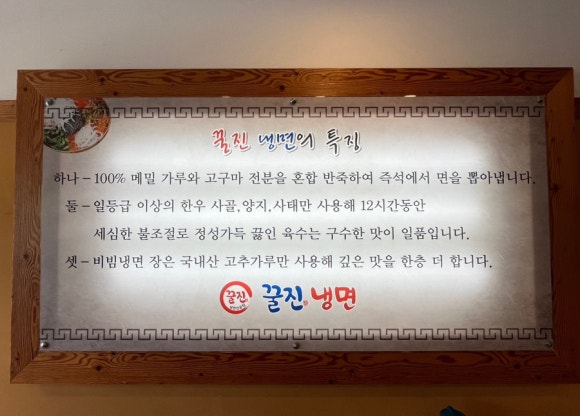 꿀진 냉면의 특징
하나 - 100% 메밀 가루와 고구마 전분을 혼합 반죽하여 즉석에서 면을 뽑아냅니다.
둘 - 일등급 이상의 한우 사골,양지,사태만 사용해 12시간동안
세심한 불조절로 정성가득 끓인 육수는 구수한 맛이 일품입니다.
셋 - 비빔냉면 장은 국내산 고추가루만 사용해 깊은 맛을 한층 더 합니다.
꿀진 꿀진 냉면